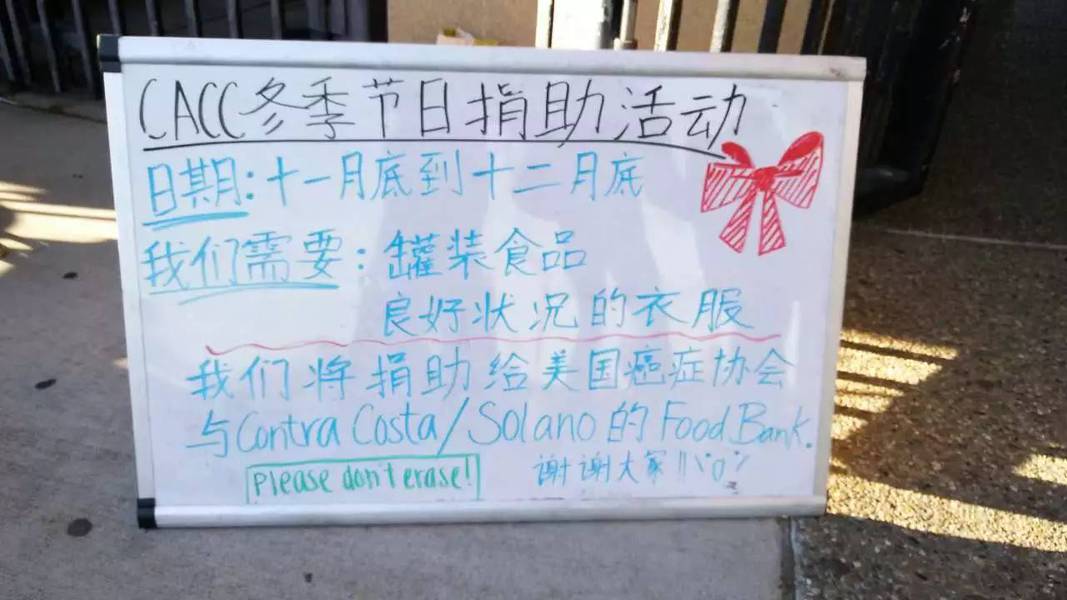 CACC冬季节日捐助活动
日期:十一月底到十二月底
我们需要:罐装食品
良好状况的衣服
我们将捐助给美国癌症协会
与Contra Costa/Solano的Food Bank.
Please don't erase!
谢谢大家!!